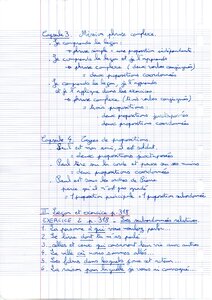 Capsule 3 : Mission phrase complexe.
- Je comprends la leçon :
→ phrase simple = une proposition indépendante.
- Je comprends la leçon et je l'apprends
→ phrase complexe (deux verbes conjugués)
= deux propositions coordonnées
- Je comprends la leçon, je l'apprends
et je l'applique dans les exercices
→ phrase complexe (trois verbes conjugués)
= trois propositions
deux propositions juxtaposées
deux propositions coordonnées.
Capsule 4 : Copies de propositions
- est mon ami, il est
= deux propositions juxtaposées
- Paul tire sur la corde et
= deux propositions coordonnées
- Paul est sous les ordres de
parce qu'il n'est pas
= proposition principale + proposition subordonnée
II. Leçon et exercice p.318
EXERCICE 2 p. 318 - Les subordonnées relatives.
1. La personne à qui vous voulez parler.
2. Le livre dont tu m'as parlé
3. celles et ceux qui consacrent leur vie aux autres
4. La ville où nous sommes allés.
5. Les films dans lesquels
6. La raison pour laquelle je vous ai convoqué.